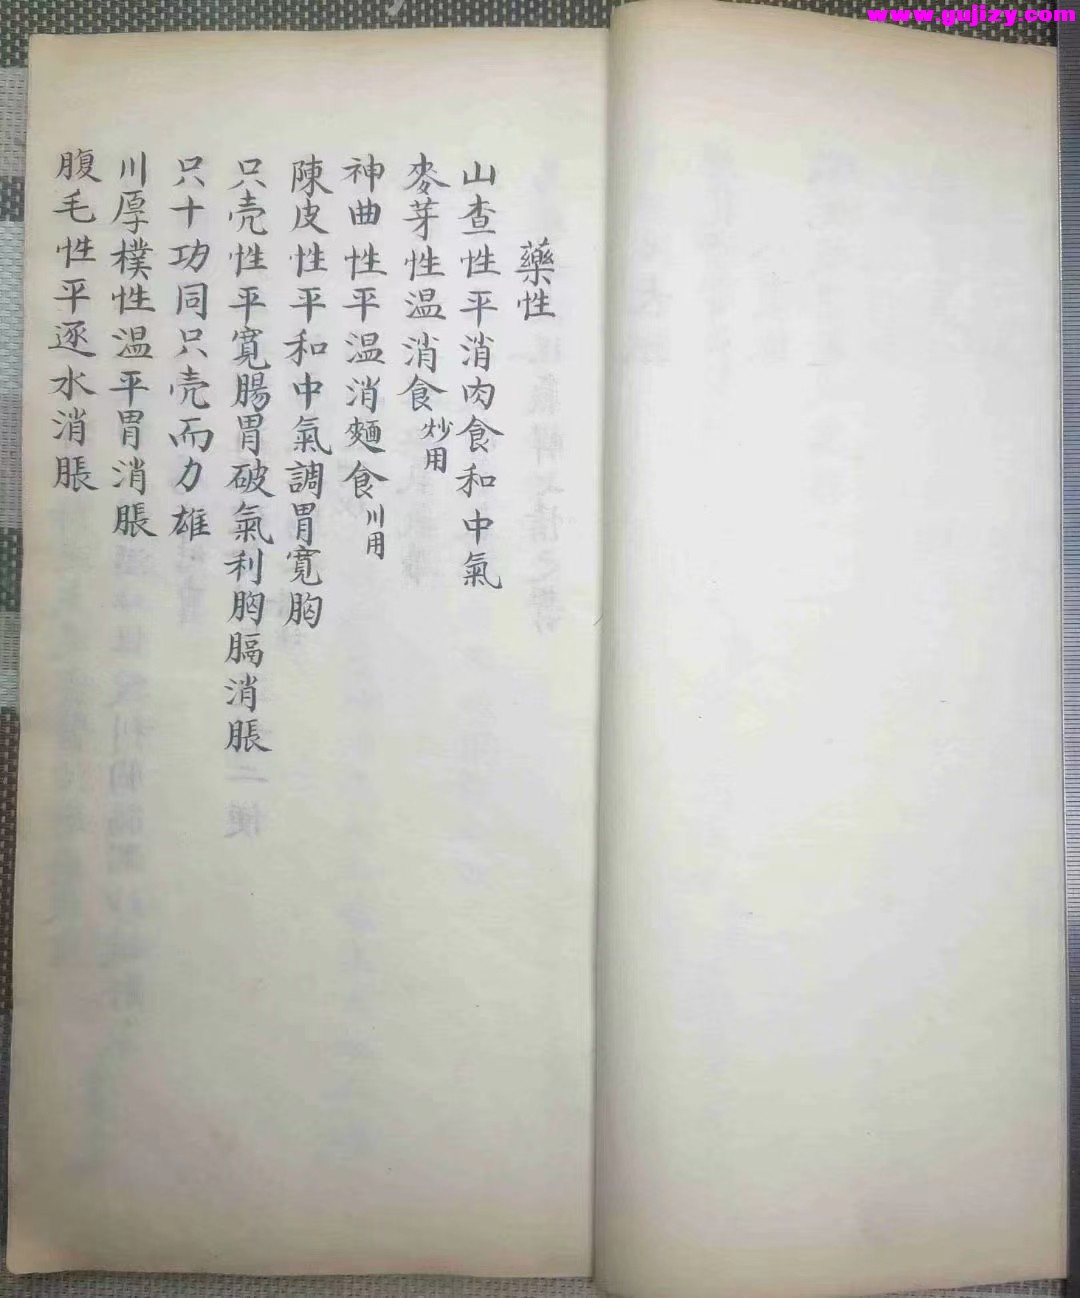 www.gujizy.com
藥性
山查性平消肉食和中氣
麥芽性温消食炒用
神曲性平温消麵食川用
陳皮性平和中氣調胃寛胸
只壳性平寛腸胃破氣利胸膈消脹
只十功同只壳而力雄
川厚樸性温平胃消脹
腹毛性平逐水消脹